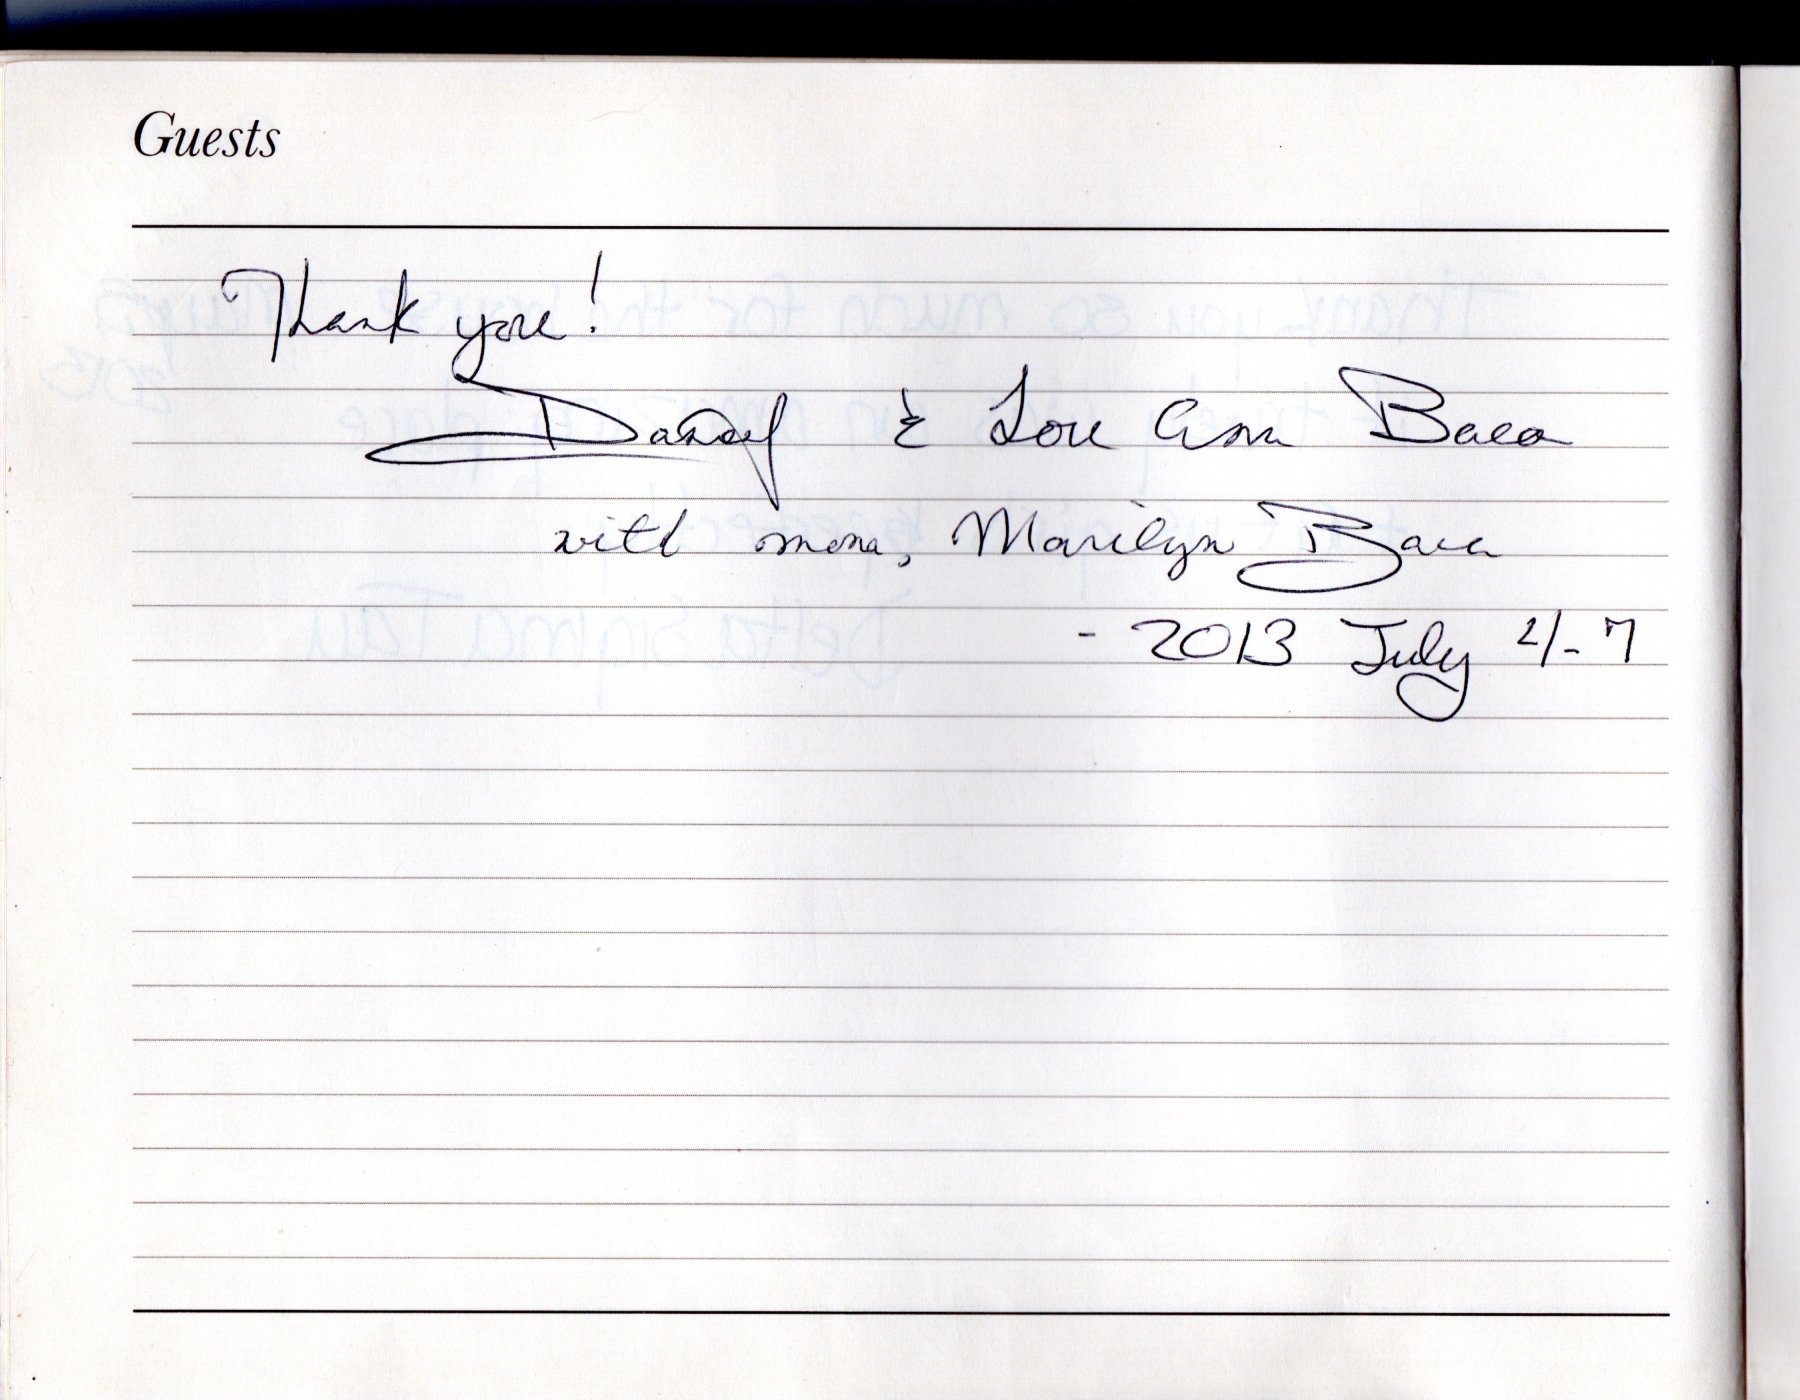 Guests
Thank you!
Daniel & Lou Ann Baca
with mom, Marilyn Baca
- 2013 July 4-7